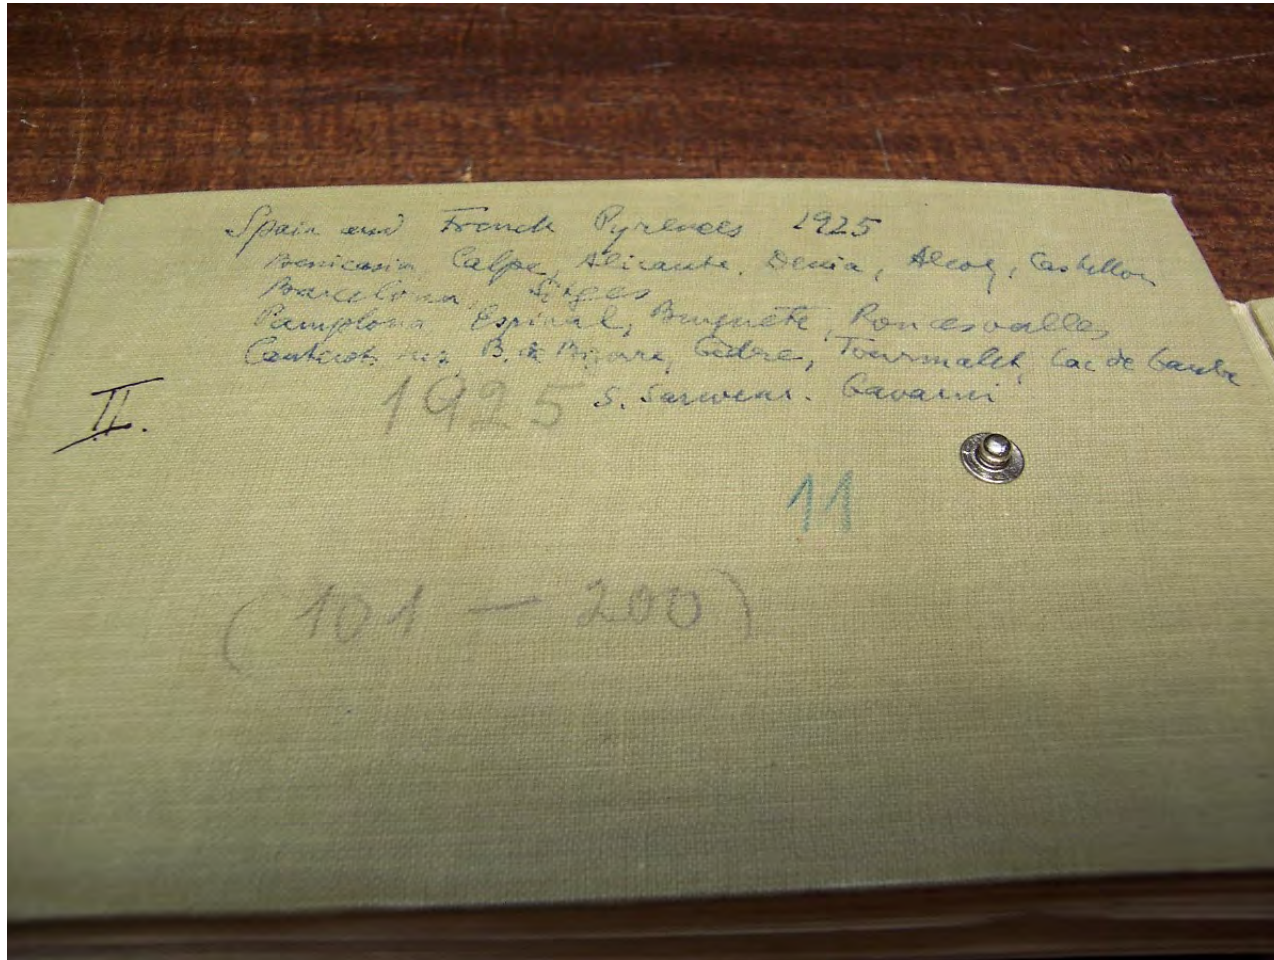 Spain and French Pyrenees 1925
Benicasim, Calpe, Alicante, Denia, Alcoy, Castellon
Barcelona, Sitges
Pamplona, Espinal, Burguete, Roncesvalles
Cauterets, Luz, B. de Bigorre, Gèdre, Tourmalet, Lac de Gaube
S. Sauveur. Gavarni
II.
1925
11
(101 — 200)